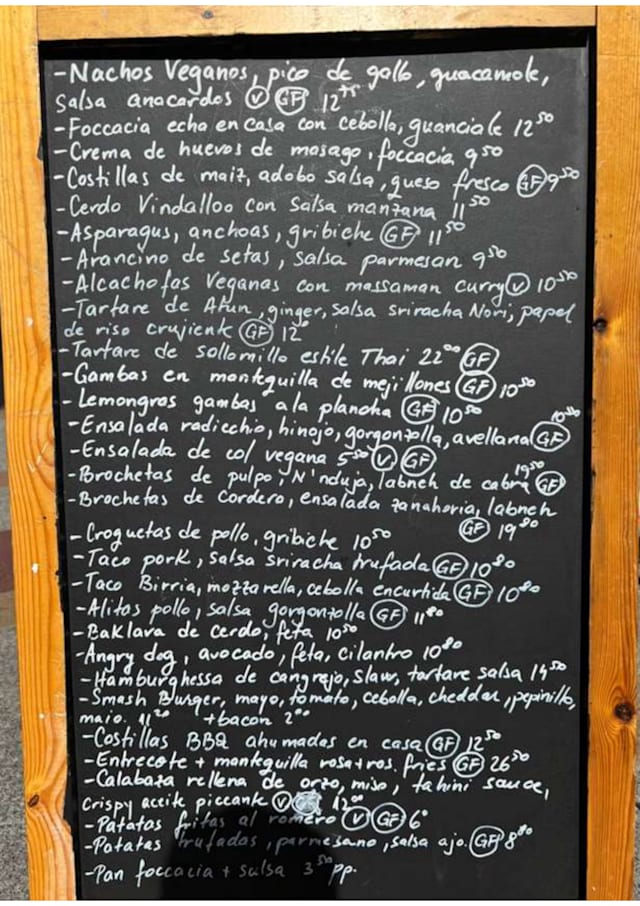 -Nachos Veganos, pico de gallo, guacamole,
Salsa anacardos V GF 12⁷⁵
-Foccacia echa en casa con cebolla, guanciale 12⁵⁰
-Crema de huevos de masago, foccacia 9⁵⁰
-Costillas de maiz, adobo salsa, queso fresco GF 9⁵⁰
-Cerdo Vindalloo con Salsa manzana 11⁵⁰
-Asparagus, anchoas, gribiche GF 11⁵⁰
-Arancino de setas, salsa parmesan 9⁵⁰
-Alcachofas Veganas con massaman curry V 10⁵⁰
-Tartare de Atun, ginger, salsa sriracha Nori, papel
de riso crujiente GF 12°
-Tartare de sollomillo estile Thai 22⁰⁰ GF
-Gambas en manteguilla de mejillones GF 10⁵⁰
-Lemongras gambas a la plancha GF 10⁵⁰
-Ensalada radicchio, hinojo, gorgonzolla, avellana GF 10⁵⁰
-Ensalada de col vegana 5⁵⁰ V GF
-Brochetas de pulpo, N'nduja, labneh de cabra GF 19⁵⁰
-Brochetas de Cordero, ensalada zanahoria, labneh
GF 19⁸⁰
-Croquetas de pollo, gribiche 10⁵⁰
-Taco pork, salsa sriracha trufada GF 10⁸⁰
-Taco Birria, mozzarella, cebolla encurtida GF 10⁸⁰
-Alitos pollo, salsa gorgonzolla GF 11⁸⁰
-Baklava de cerdo, feta 10⁵⁰
-Angry dog, avocado, feta, cilantro 10⁸⁰
-Hamburghessa de cangrejo, slaw, tartare salsa 14⁵⁰
-Smash Burger, mayo, tomato, cebolla, cheddar, pepinillo,
maio. +bacon 2⁰⁰
-Costillas BBQ ahumadas en casa GF 12⁵⁰
-Entrecote + manteguilla rosa+ros. fries GF 26⁵⁰
-Calabaza rellena de orzo, miso, tahini sauce,
Crispy aceite piccante V 12⁰⁰
-Patatas fritas al romero V GF 6°
-Patatas trufadas, parmesano, salsa ajo. GF 8⁸⁰
-Pan foccacia + salsa 3⁵⁰ pp.